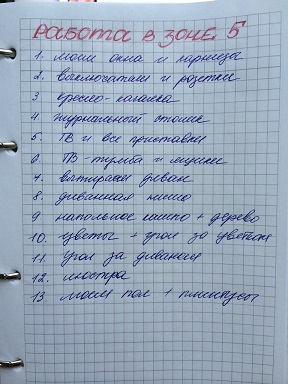 РАБОТА В ЗОНЕ 5
1. моем окна и карнизы
2. выключатели и розетки
3 кресло-качалка
4. журнальный столик
5. ТВ и все приставки
6. ТВ-тумба и ящики
7. вытираем диван
8. диванная ниша
9. напольное кашпо + дерево
10. цветы + угол за цветком
11. угол за диваном
12. люстра
13. моем пол + плинтусы